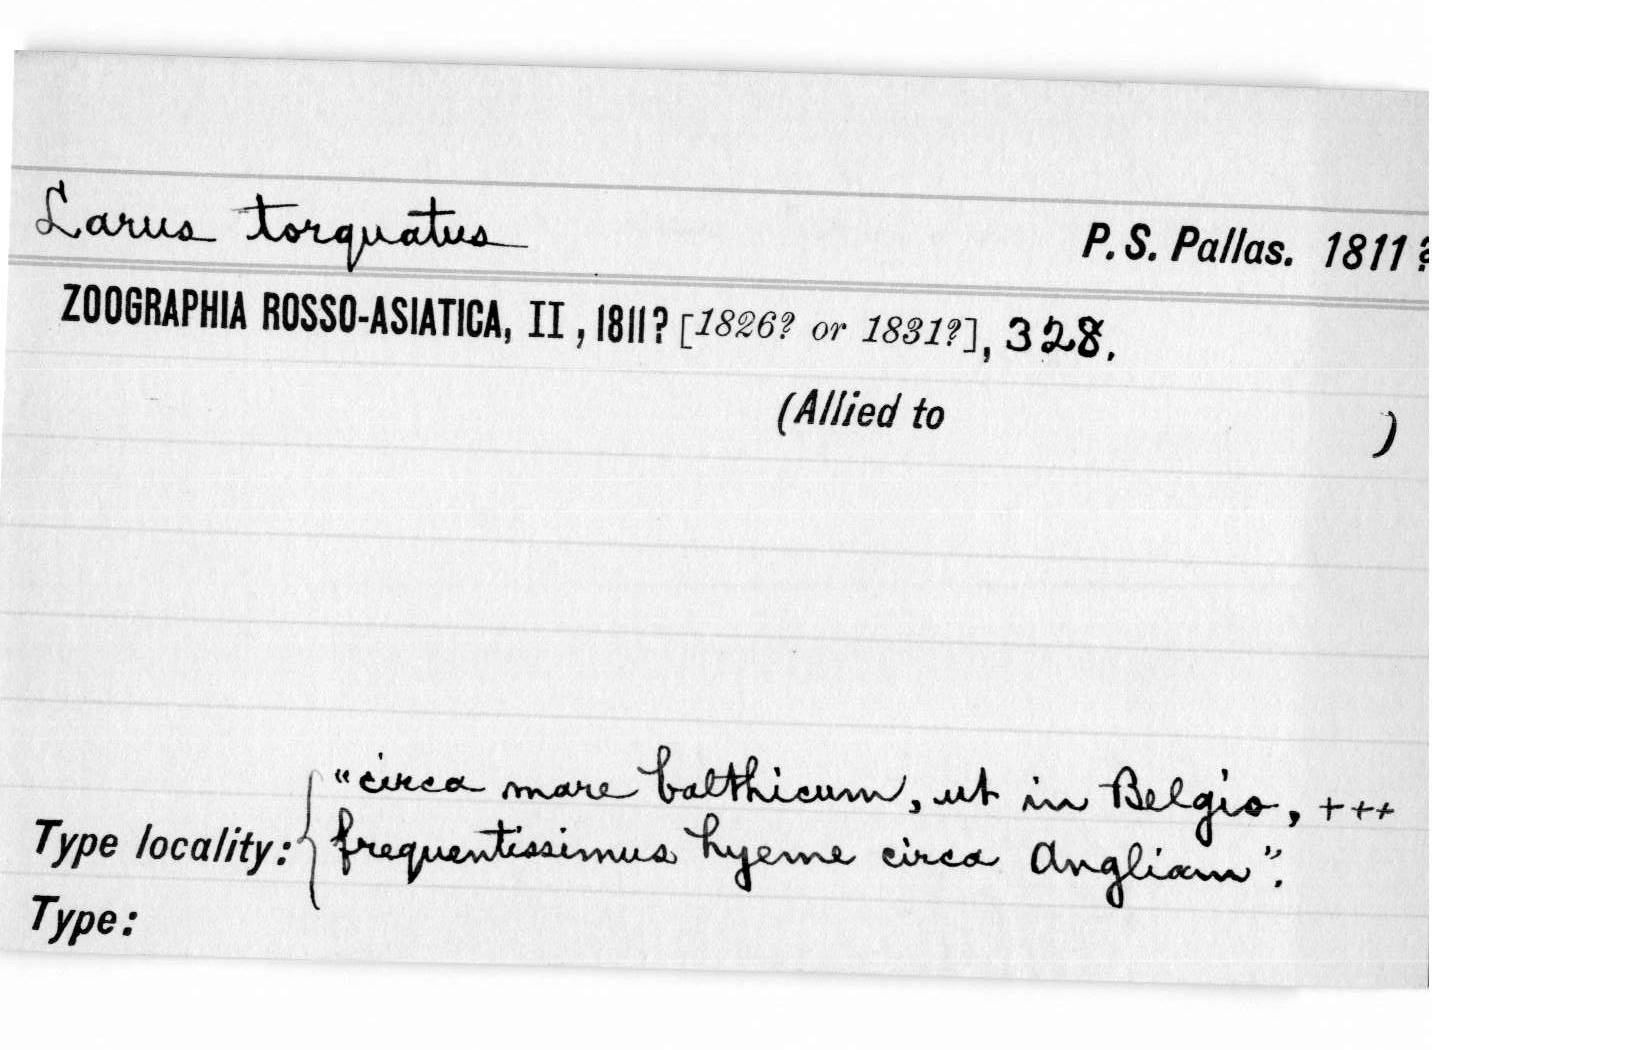 Larus torquatus P. S. Pallas. 1811?
ZOOGRAPHIA ROSSO-ASIATICA, II, 1811? [1826? or 1831?], 328.
(Allied to )
"circa mare balthicum, ut in Belgio, +++
Type locality: frequentissimus hyeme circa Angliam".
Type: